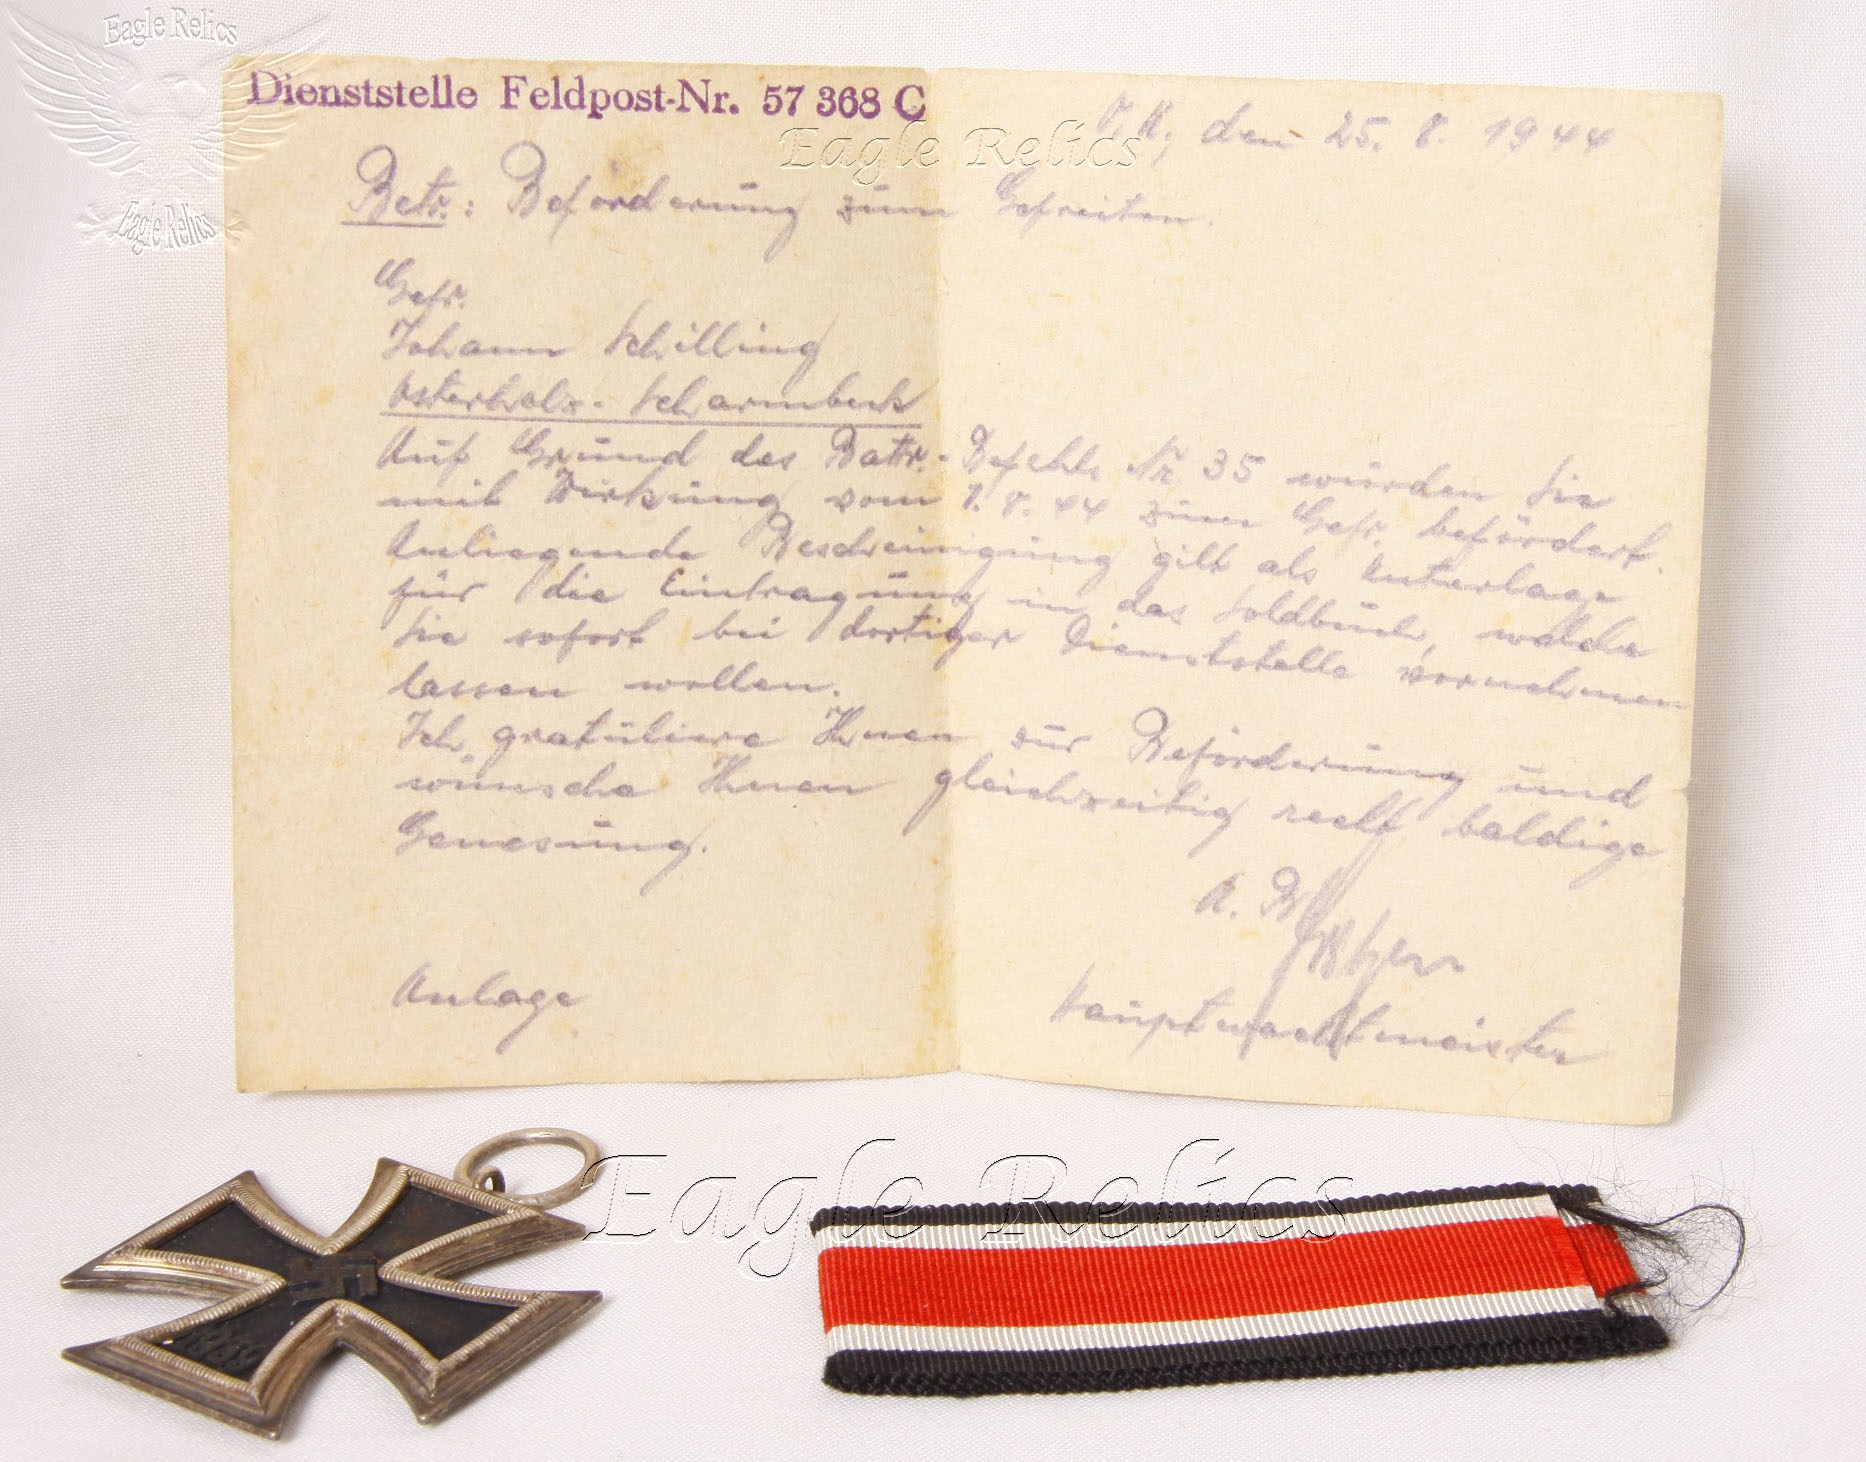 Eagle Relics
Eagle Relics
Dienststelle Feldpost-Nr. 57 368 C
O.U., den 25. 8. 1944
Eagle Relics
Betr.: Beförderung zum Gefreiten.
Gefr.
Johann Schilling
Osterholz-Scharmbeck
Auf Grund des Battr.-Befehls Nr. 35 wurden Sie
mit Wirkung vom 1.8.44 zum Gefr. befördert.
Anliegende Bescheinigung gilt als Unterlage
für die Eintragung in das Soldbuch, welche
Sie sofort bei dortiger Dienststelle vornehmen
lassen wollen.
Ich gratuliere Ihnen zur Beförderung und
wünsche Ihnen gleichzeitig recht baldige
Genesung.
A. B.
Hauptwachtmeister
Anlage
Eagle Relics
1939